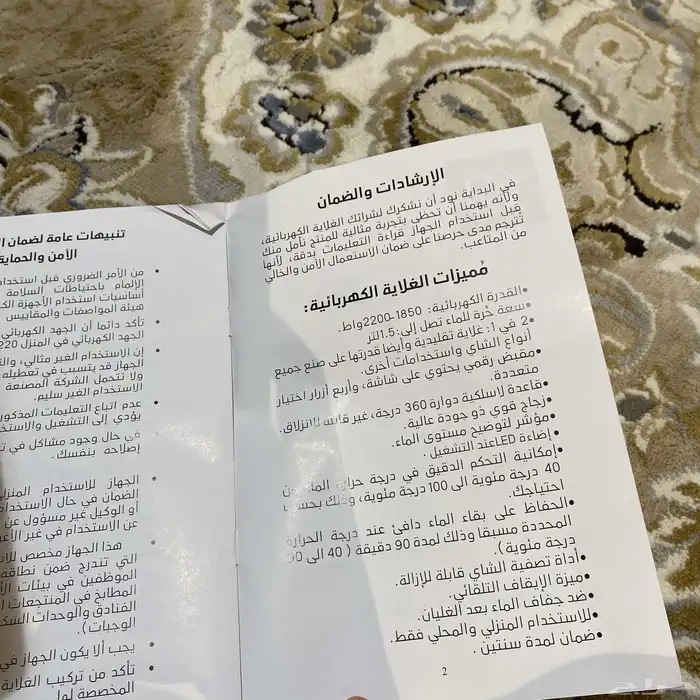 الإرشادات والضمان
في البداية نود أن نشكرك لشرائك الغلاية الكهربائية،
ولأنه يهمنا أن تحظى بتجربة مثالية للمنتج نأمل منك
قبل استخدام الجهاز قراءة التعليمات بدقة، لأنها
تترجم مدى حرصنا على ضمان الاستعمال الآمن والخالي
من المتاعب.
مُميزات الغلاية الكهربائية:
•القدرة الكهربائية: 1850-2200واط.
•سعة حُرة للماء تصل إلى: 1.5لتر
•2 في 1: غلاية تقليدية وأيضا قدرتها على صنع جميع
أنواع الشاي واستخدامات أخرى.
•مقبض رقمي يحتوي على شاشة، وأربع أزرار اختيار
متعددة.
•قاعدة لاسلكية دوارة 360 درجة، غير قابلة للانزلاق.
•زجاج قوي ذو جودة عالية.
•مؤشر لتوضيح مستوى الماء.
•إضاءة LED عند التشغيل.
•إمكانية التحكم الدقيق في درجة حرارة الماء من
40 درجة مئوية الى 100 درجة مئوية، وذلك بحسب
احتياجك.
•الحفاظ على بقاء الماء دافئ عند درجة الحرارة
المحددة مسبقا وذلك لمدة 90 دقيقة ( 40 الى 90
درجة مئوية).
•أداة تصفية الشاي قابلة للإزالة.
•ميزة الإيقاف التلقائي.
•ضد جفاف الماء بعد الغليان.
•للاستخدام المنزلي والمحلي فقط.
•ضمان لمدة سنتين .
2
تنبيهات عامة لضمان
الآمن والحماية
• من الأمر الضروري قبل استخدام
الإلمام باحتياطات السلامة
أساسيات استخدام الأجهزة
هيئة المواصفات والمقاييس
• تأكد دائما أن الجهد الكهربائي
الجهد الكهربائي في المنزل 220
• إن الاستخدام الغير مثالي،
الجهاز قد يتسبب في تعطيله
ولا تتحمل الشركة المصنعة
الاستخدام الغير سليم.
• عدم اتباع التعليمات
يؤدي إلى التشغيل
• في حال وجود مشاكل في
إصلاحه بنفسك.
• الجهاز للاستخدام
الضمان في حال
أو الوكيل غير مسؤول عن
عن الاستخدام في غير
• هذا الجهاز مخصص
التي تندرج ضمن نطاق
الموظفين في بيئات
المطابخ في المنتجعات
الفنادق والوحدات
الوجبات).
• يجب ألا يكون الجهاز في
• تأكد من تركيب الغلاية
المخصصة لها